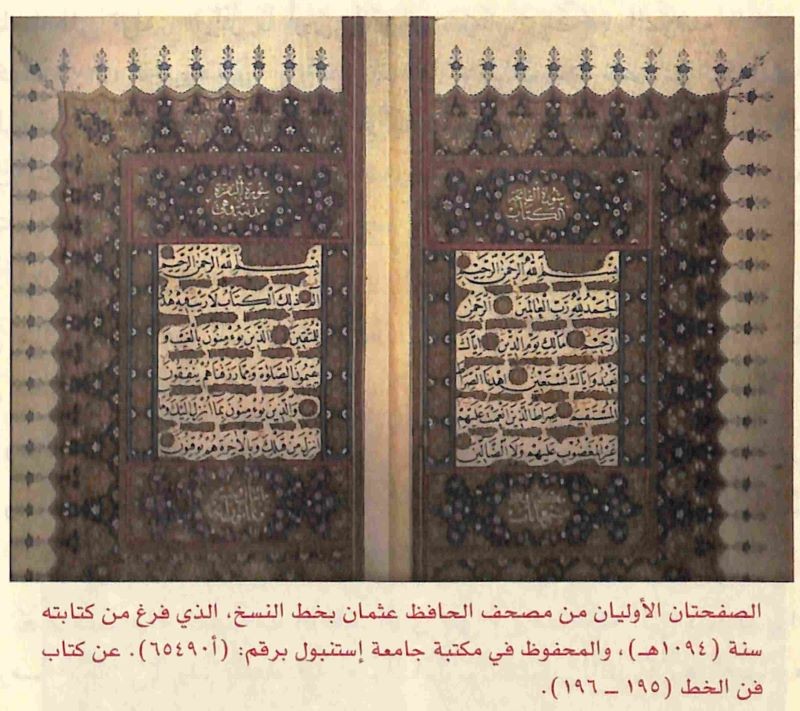 سورة الفاتحة
الكتاب
بسم الله الرحمن الرحيم
الحمد لله رب العالمين الرحمن
الرحيم مالك يوم الدين اياك
نعبد واياك نستعين اهدنا الصراط
المستقيم صراط الذين انعمت عليهم
غير المغضوب عليهم ولا الضالين
سورة البقرة
مدنية وهي
بسم الله الرحمن الرحيم
الم ذلك الكتاب لا ريب فيه هدى
للمتقين الذين يؤمنون بالغيب و
يقيمون الصلوة ومما رزقناهم ينفقون
والذين يؤمنون بما انزل اليك وما
انزل من قبلك وبالاخرة هم يوقنون
الصفحتان الأوليان من مصحف الحافظ عثمان بخط النسخ، الذي فرغ من كتابته
سنة (١٠٩٤هـ)، والمحفوظ في مكتبة جامعة إستنبول برقم: (أ٦٥٤٩٠). عن كتاب
فن الخط (١٩٥ ــ ١٩٦).